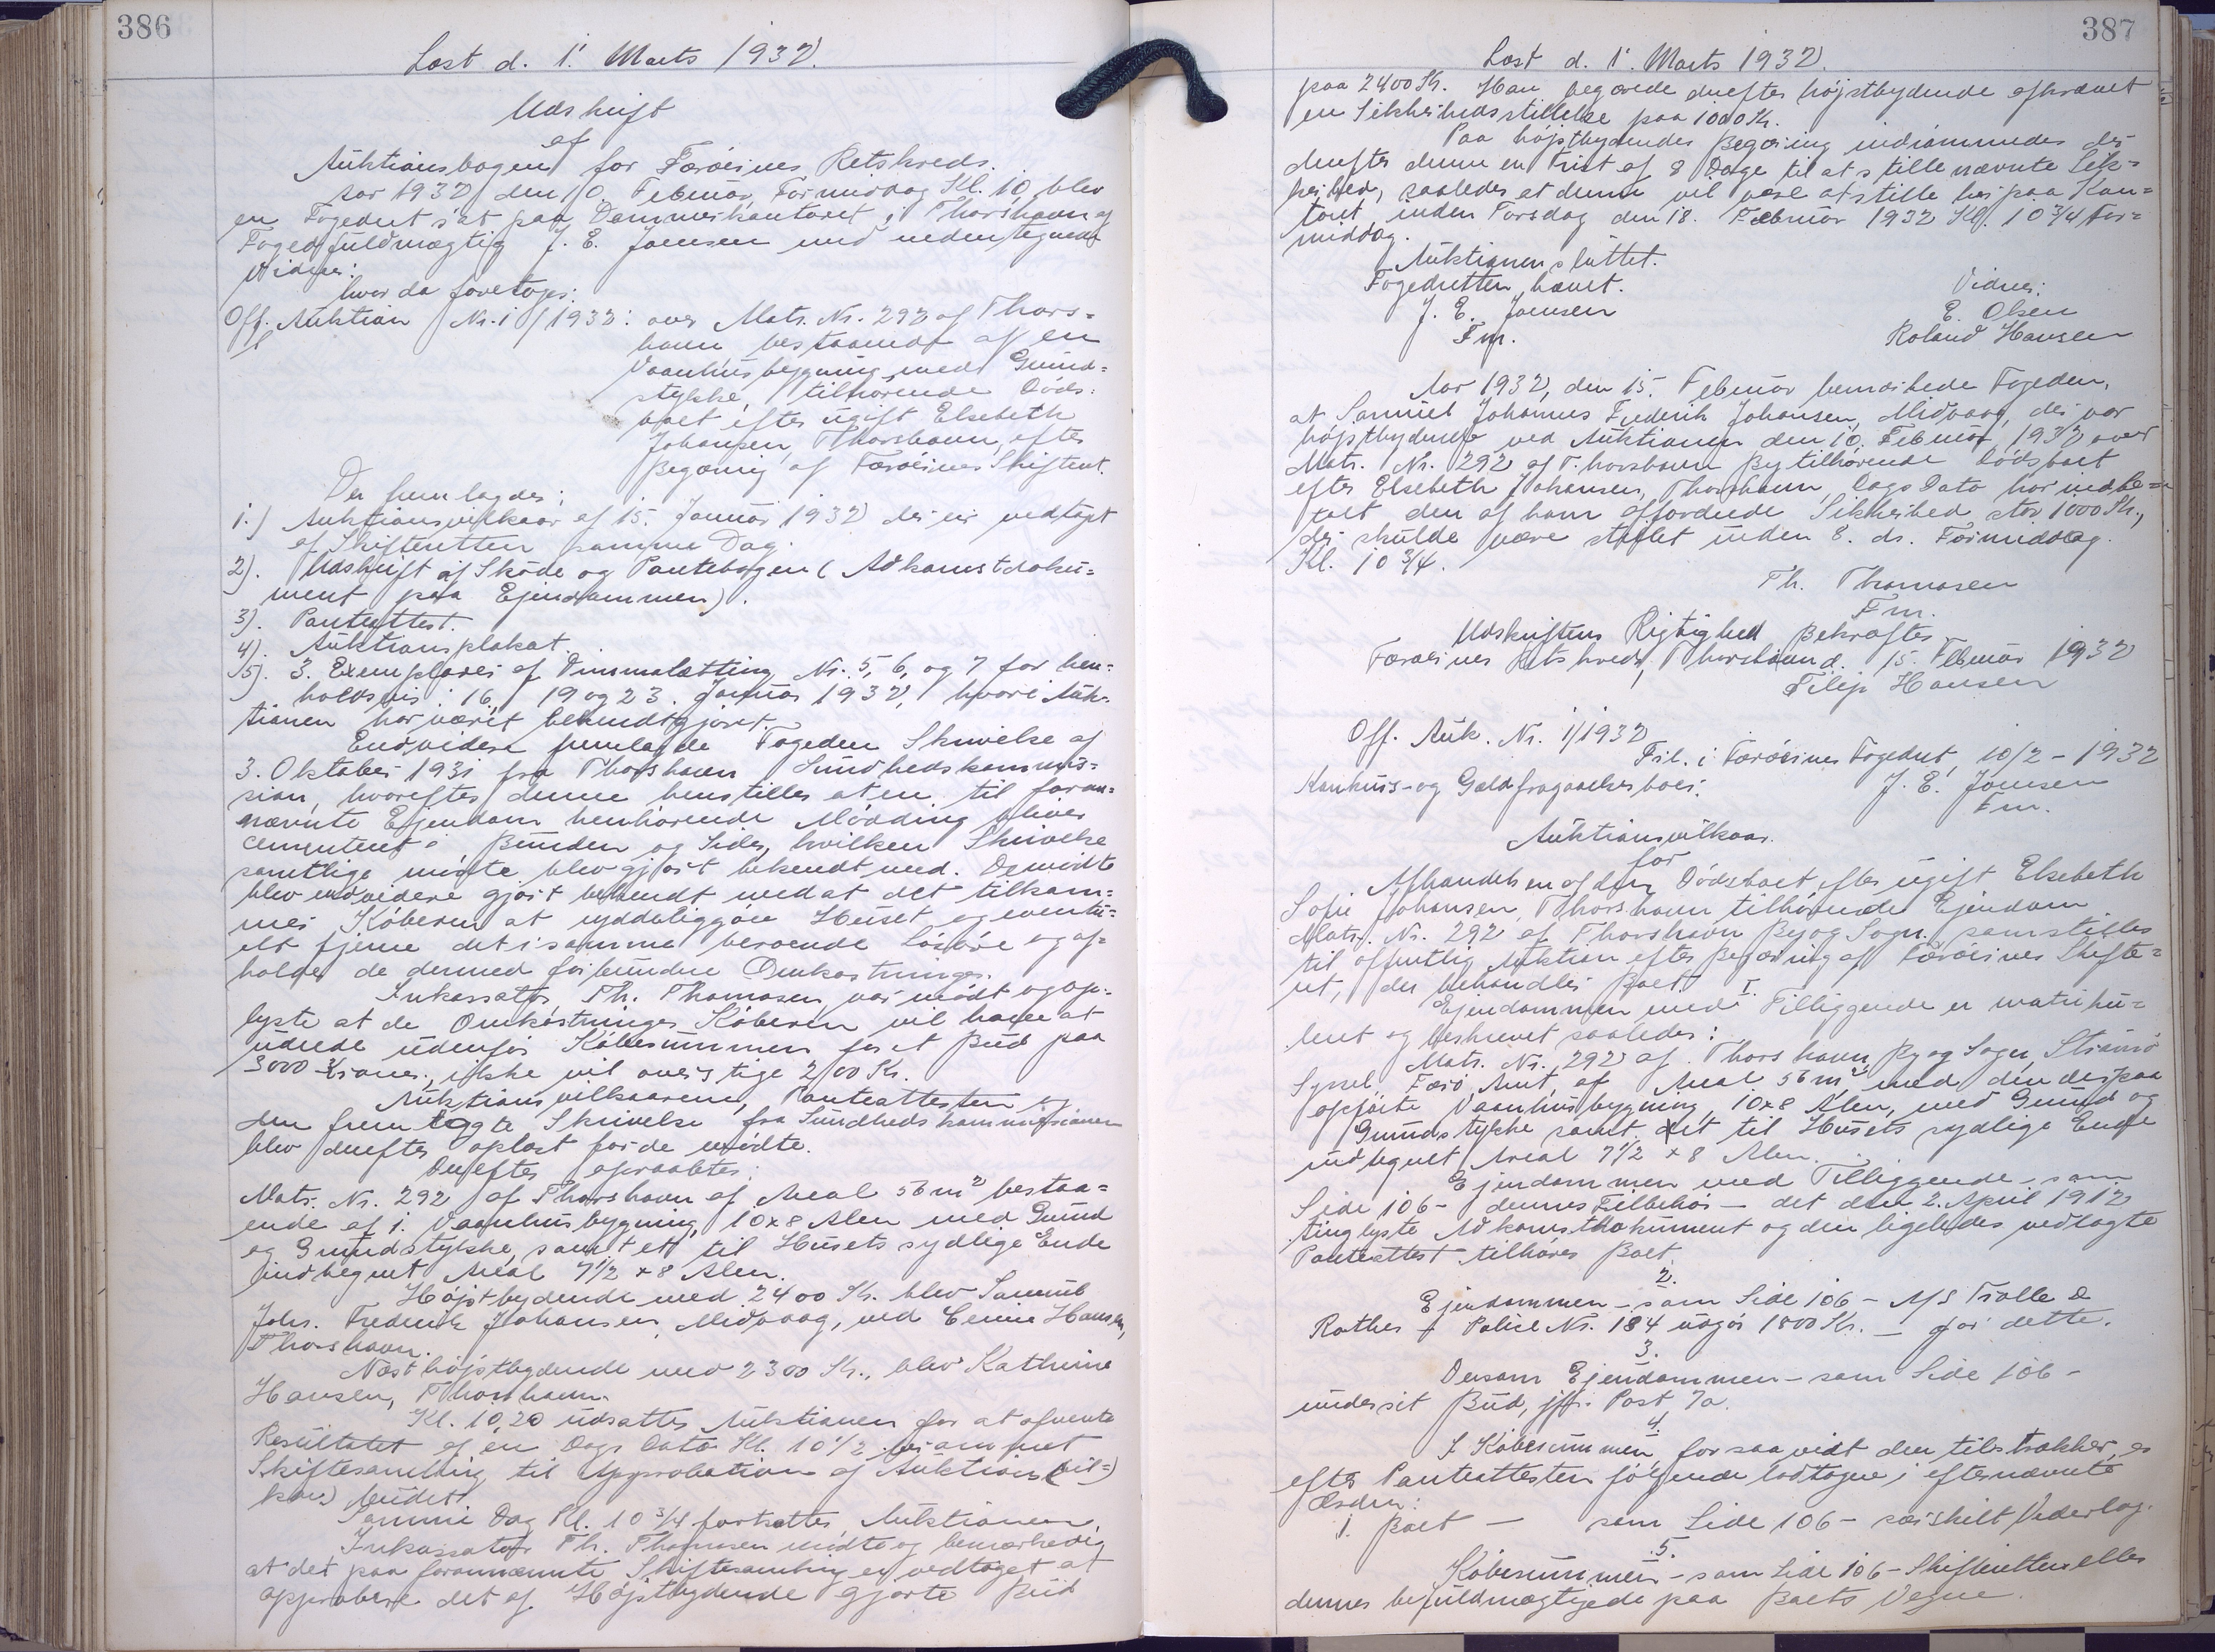 386
Læst d. 1. Marts 1932.
Udskrift
af
Auktionsbogen for Færøernes Retskreds.
Aar 1932 den 10. Februar, Formiddag Kl. 10, blev
en Fogedret sat paa Dommerkontoret i Thorshavn af
Fogedfuldmægtig J. E. Joensen med undertegnede
Vidner:
hvor da foretoges:
Off. Auktion Nr. 1/1932: over Matr. Nr. 292 af Thors=
havn bestaaende af en
Vaanhusbygning med Grund=
stykke, tilhørende Døds=
boet efter ugift Elsebeth
Johansen, Thorshavn, efter
Begæring af Færøernes Skifteret.
Der fremlagdes:
1.) Auktionsvilkaar af 15. Januar 1932 der er vedtaget
af Skifteretten samme Dag.
2). Udskrift af Skøde og Pantebogen (Adkomstdoku=
ment paa Ejendommen).
3). Panteattest.
4). Auktionsplakat.
5). 3. Exemplarer af Dimmalætting Nr. 5, 6, og 7 for hen=
holdsvis: 16, 19 og 23. Januar 1932, hvori Auk=
tionen har været bekendtgjort.
Endvidere fremlagde Fogeden Skrivelse af
3. Oktober 1931 fra Thorshavn Sundhedskommis=
sion, hvorefter denne henstilles at en til foran=
nævnte Ejendom henhørende Mødding bliver
cementeret i Bunden og Sider, hvilken Skrivelse
samtlige mødte blev gjort bekendt med. De mødte
blev endvidere gjort bekendt med at det tilkom=
mer Køberen at ryddeliggøre Huset og eventu=
elt fjerne det i samme beroende Løsøre og af=
holde de dermed forbundne Omkostninger.
Inkassator Th. Thomasen var mødt og op=
lyste at de Omkostninger Køberen vil have at
udrede udenfor Købesummen for et Bud paa
3000 Kroner, ikke vil overstige 200 Kr.
Auktionsvilkaarene, Panteattesten og
den fremlagte Skrivelse fra Sundhedskommissionen
blev derefter oplæst for de mødte.
Derefter opraabtes:
Matr. Nr. 292 af Thorshavn af Areal 56 m² bestaa=
ende af 1. Vaanhusbygning, 10x8 Alen med Grund
og Grundstykke, samt et til Husets sydlige Ende
indhegnet Areal 7½ x 8 Alen.
Højstbydende med 2400 Kr. blev Samuel
Johs. Frederik Johansen, Midvaag, ved Hansen,
Thorshavn.
Næsthøjstbydende med 2300 Kr., blev Kathrine
Hansen, Thorshavn.
Kl. 10,20 udsattes Auktionen for at afvente
Resultatet af en Dags Dato Kl. 10½ berammet
Skiftesamling til Approbation af Auktions(vil=)
kaar) budet.
Samme Dag Kl. 10¾ fortsattes Auktionen.
Inkassator Th. Thomasen mødte og bemærkede,
at det paa forannævnte Skiftesamling er vedtaget at
approbere det af Højstbydende gjorte Bud
387
Læst d. 1. Marts 1932.
paa 2400 Kr. Han begærede derefter højstbydende afkrævet
en Sikkerhedsstillelse paa 1000 Kr.
Paa højstbydendes Begæring indrømmedes der
derefter denne en Frist af 8 Dage til at stille nævnte Sik=
kerhed, saaledes at denne vil være at stille her paa Kon=
toret inden Torsdag den 18. Februar 1932 Kl. 10¾ For=
middag.
Auktionen sluttet.
Fogedretten hævet.
Vidner:
J. E. Joensen
E. Olsen
Fm.
Roland Hansen
Aar 1932, den 15. Februar bemærkede Fogeden,
at Samuel Johannes Frederik Johansen, Midvaag, der var
højstbydende ved Auktionen den 10. Februar 1932 over
Matr. Nr. 292 af Thorshavn By tilhørende Dødsboet
efter Elsebeth Johansen, Thorshavn, Dags Dato har indbe=
talt den af ham affordrede Sikkerhed stor 1000 Kr.,
der skulde være stillet inden 8. ds. Formiddag
Kl. 10¾.
Th. Thomasen
Fm.
Udskriftens Rigtighed Bekræftes
Færøernes Retskreds, Thorshavn d. 15. Februar 1932
Filip Hansen
Off. Auk. Nr. 1/1932
Fil. i Færøernes Fogedret, 10/2 - 1932
Konkurs- og Gældfragaaelsesboer.
J. E. Joensen
Fm.
Auktionsvilkaar.
for
Afhændelsen af den Dødsboet efter ugift Elsebeth
Sofie Johansen, Thorshavn tilhørende Ejendom
Matr. Nr. 292 af Thorshavn By og Sogn, som stilles
til offentlig Auktion efter Begæring af Færøernes Skifte=
ret, der behandler Boet.
I.
Ejendommen med Tilliggende er matriku=
leret og beskrevet saaledes:
Matr. Nr. 292 af Thorshavn By og Sogn, Strømø
Syssel Færø Amt, af Areal 56 m² med den derpaa
opførte Vaanhusbygning, 10x8 Alen, med Grund og
Grundstykke samt det til Husets sydlige Ende
indhegnet Areal 7½ x 8 Alen.
Ejendommen med Tilliggende som
Side 106 - dennes Tilbehør - det den 2. April 1912
tinglyste Adkomstdokument og den ligeledes vedlagte
Panteattest tilhører Boet.
2.
Ejendommen - som Side 106 - A/S Trolle &
Rothes - Police Nr. 184 udgør 1800 Kr. - for dette.
3.
Dersom Ejendommen - som Side 106 -
under sit Bud, jfr. Post 7a.
4.
I Købesummen, for saa vidt den tilstrækker, er
efter Panteattesten følgende lodtagne i efternævnte
Orden:
1. Boet - som Side 106 - særskilt Vederlag.
5.
Købesummen - som Side 106 - Skifteretten eller
dennes befuldmægtigede paa Boets Vegne.